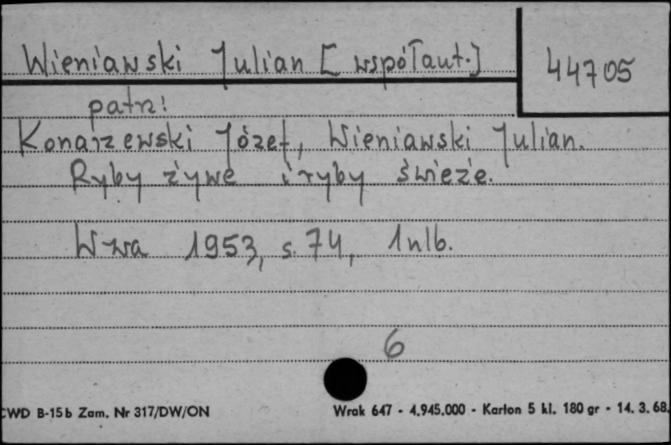 Wieniawski Julian [współaut.]
44705
patrz!
Konarzewski Józef, Wieniawski Julian.
Ryby żywe i ryby świeże.
W-wa 1953, s. 74, 1 nlb.
6
CWD B-15b Zam. Nr 317/DW/ON
Wrak 647 - 4.945.000 - Karton 5 kl. 180 gr - 14. 3. 68.